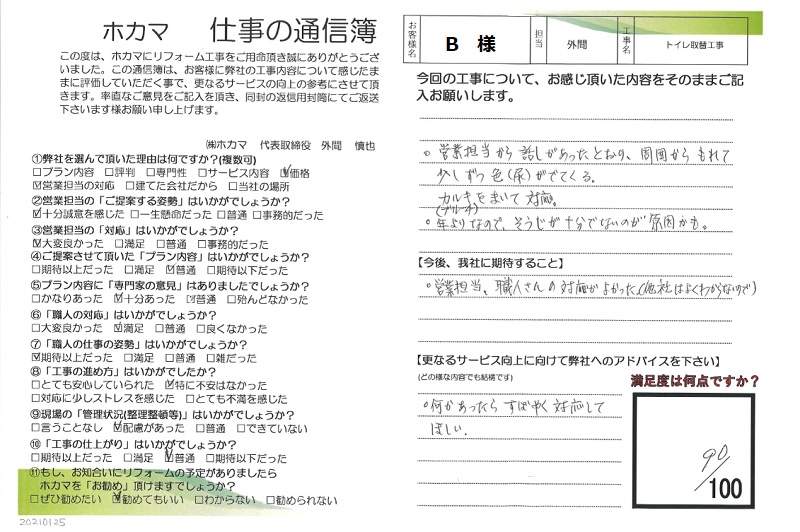 ホカマ 仕事の通信簿
この度は、ホカマにリフォーム工事をご用命頂き誠にありがとうござ
いました。この通信簿は、お客様に弊社の工事内容について感じたまま
に評価していただく事で、更なるサービスの向上の参考にさせて頂
きます。率直なご意見をご記入を頂き、同封の返信用封筒にてご返送
下さいます様お願い申し上げます。
㈱ホカマ 代表取締役 外間 慎也
①弊社を選んで頂いた理由は何ですか？(複数可)
□プラン内容 □評判 □専門性 □サービス内容 ☑価格
☑営業担当の対応 □建てた会社だから □当社の場所
②営業担当の「ご提案する姿勢」はいかがでしょうか？
☑十分誠意を感じた □一生懸命だった □普通 □事務的だった
③営業担当の「対応」はいかがでしょうか？
☑大変良かった □満足 □普通 □事務的だった
④ご提案させて頂いた「プラン内容」はいかがでしょうか？
□期待以上だった □満足 ☑普通 □期待以下だった
⑤プラン内容に「専門家の意見」はありましたでしょうか？
□かなりあった ☑十分あった ☑普通 □殆んどなかった
⑥「職人の対応」はいかがでしょうか？
□大変良かった ☑満足 □普通 □良くなかった
⑦「職人の仕事の姿勢」はいかがでしょうか？
☑期待以上だった □満足 □普通 □雑だった
⑧「工事の進め方」はいかがでしたか？
□とても安心していられた ☑特に不安はなかった
□対応に少しストレスを感じた □とても不満を感じた
⑨現場の「管理状況(整理整頓等)」はいかがでしょうか？
□言うことなし ☑配慮があった □普通 □できていない
⑩「工事の仕上がり」はいかがでしょうか？
□期待以上だった □満足 ☑普通 □期待以下だった
⑪もし、お知合いにリフォームの予定がありましたら
ホカマを「お勧め」頂けますでしょうか？
□ぜひ勧めたい ☑勧めてもいい □わからない □勧められない
20210125
お客様名 B 様 担当 外間 工事名 トイレ取替工事
今回の工事について、お感じ頂いた内容をそのままご記
入お願いします。
。営業担当から話しがあったとおり、周囲からもれて
少しずつ色(尿)がでてくる。
カルキをまいて対応。
(ブリーチ)
。年よりなので、そうじが十分でないのが原因かも。
【今後、我社に期待すること】
。営業担当、職人さんの対応がよかった。(他社はよくわからないので)
【更なるサービス向上に向けて弊社へのアドバイスを下さい】
(どの様な内容でも結構です)
。何かあったらすばやく対応して
ほしい。
満足度は何点ですか？
90
/100